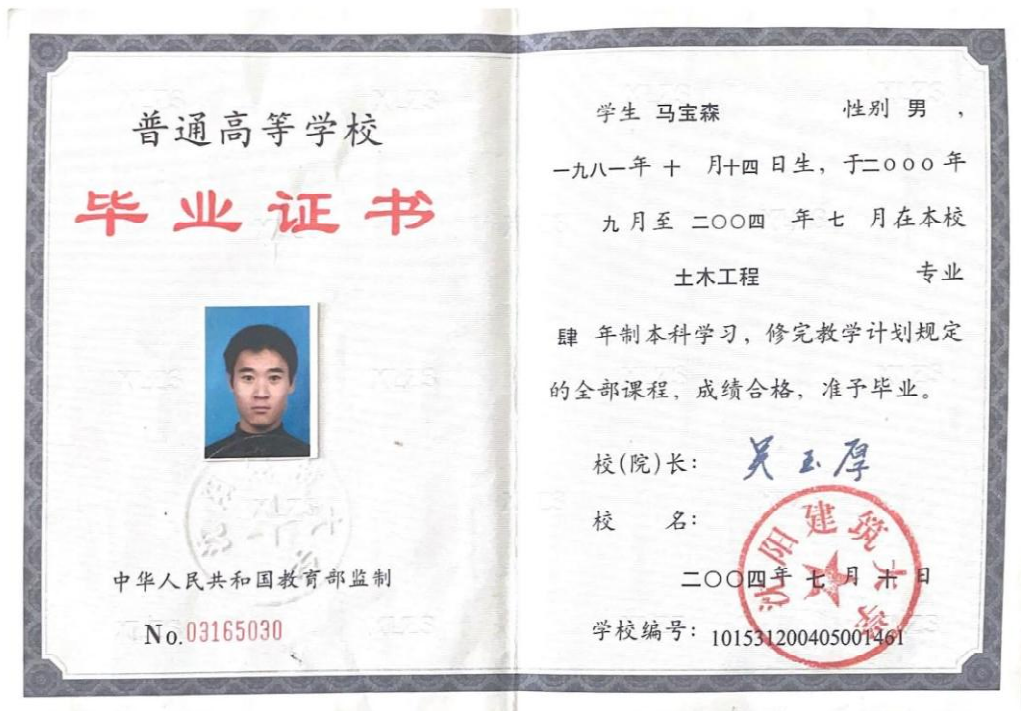 普通高等学校
毕业证书
中华人民共和国教育部监制
No.03165030
学生 马宝森 性别 男，
一九八一年 十 月十四日生，于二〇〇〇年
九月至 二〇〇四 年 七 月在本校
土木工程 专业
肆 年制本科学习，修完教学计划规定
的全部课程，成绩合格，准予毕业。
校(院)长： 吴玉厚
校 名：
沈阳建筑大学
二〇〇四年 七 月 十 日
学校编号：101531200405001461